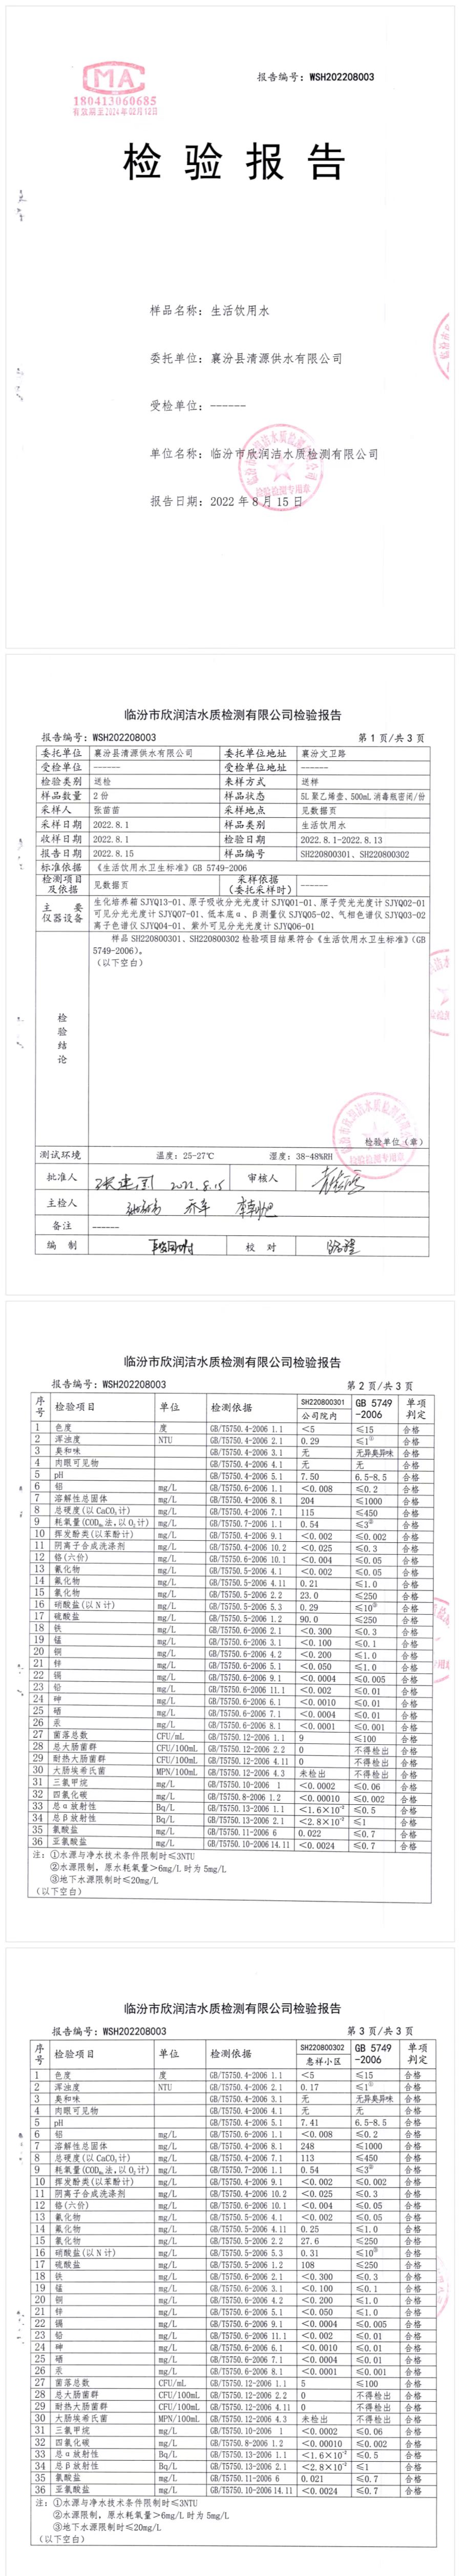 MA
180413060685
有效期至2024年02月12日
报告编号：WSH202208003
检验报告
样品名称：生活饮用水
委托单位：襄汾县清源供水有限公司
受检单位：------
单位名称：临汾市欣润洁水质检测有限公司
报告日期：2022年8月15日
临汾市欣润洁水质检测有限公司检验报告
报告编号：WSH202208003 第1页/共3页
委托单位 襄汾县清源供水有限公司 委托单位地址 襄汾文卫路
受检单位 ------ 受检单位地址 ------
检验类别 送检 来样方式 送样
样品数量 2份 样品状态 5L聚乙烯壶、500mL消毒瓶密闭/份
采样人 张苗苗 采样地点 见数据页
采样日期 2022.8.1 样品类别 生活饮用水
收样日期 2022.8.1 检验日期 2022.8.1-2022.8.13
报告日期 2022.8.15 样品编号 SH220800301、SH220800302
标准依据 《生活饮用水卫生标准》GB 5749-2006
检测项目及依据 见数据页 采样依据（委托采样时） ------
主要仪器设备 生化培养箱SJYQ13-01、原子吸收分光光度计SJYQ01-01、原子荧光光度计SJYQ02-01
可见分光光度计SJYQ07-01、低本底α、β测量仪SJYQ05-02、气相色谱仪SJYQ03-02
离子色谱仪SJYQ04-01、紫外可见分光光度计SJYQ06-01
检验结论
样品SH220800301、SH220800302检验项目结果符合《生活饮用水卫生标准》（GB
5749-2006）。
（以下空白）
检验单位（章）
测试环境 温度：25-27℃ 湿度：38-48%RH
批准人 2022.8.15 审核人
主检人
备注 ------
编制 校对
临汾市欣润洁水质检测有限公司检验报告
报告编号：WSH202208003 第2页/共3页
序号 检验项目 单位 检测依据 SH220800301 公司院内 GB 5749-2006 单项判定
1 色度 度 GB/T5750.4-2006 1.1 <5 ≤15 合格
2 浑浊度 NTU GB/T5750.4-2006 2.1 0.29 ≤1① 合格
3 臭和味 GB/T5750.4-2006 3.1 无 无异臭异味 合格
4 肉眼可见物 GB/T5750.4-2006 4.1 无 无 合格
5 pH GB/T5750.4-2006 5.1 7.50 6.5-8.5 合格
6 铝 mg/L GB/T5750.6-2006 1.1 <0.008 ≤0.2 合格
7 溶解性总固体 mg/L GB/T5750.4-2006 8.1 204 ≤1000 合格
8 总硬度(以CaCO₃计) mg/L GB/T5750.4-2006 7.1 115 ≤450 合格
9 耗氧量(CODMn法,以O₂计) mg/L GB/T5750.7-2006 1.1 0.54 ≤3② 合格
10 挥发酚类(以苯酚计) mg/L GB/T5750.4-2006 9.1 <0.002 ≤0.002 合格
11 阴离子合成洗涤剂 mg/L GB/T5750.4-2006 10.2 <0.025 ≤0.3 合格
12 铬(六价) mg/L GB/T5750.6-2006 10.1 <0.004 ≤0.05 合格
13 氰化物 mg/L GB/T5750.5-2006 4.1 <0.002 ≤0.05 合格
14 氟化物 mg/L GB/T5750.5-2006 4.11 0.21 ≤1.0 合格
15 氯化物 mg/L GB/T5750.5-2006 2.2 23.0 ≤250 合格
16 硝酸盐(以N计) mg/L GB/T5750.5-2006 5.3 0.29 ≤10③ 合格
17 硫酸盐 mg/L GB/T5750.5-2006 1.2 90.0 ≤250 合格
18 铁 mg/L GB/T5750.6-2006 2.1 <0.300 ≤0.3 合格
19 锰 mg/L GB/T5750.6-2006 3.1 <0.100 ≤0.1 合格
20 铜 mg/L GB/T5750.6-2006 4.2 <0.200 ≤1.0 合格
21 锌 mg/L GB/T5750.6-2006 5.1 <0.050 ≤1.0 合格
22 镉 mg/L GB/T5750.6-2006 9.1 <0.0004 ≤0.005 合格
23 铅 mg/L GB/T5750.6-2006 11.1 <0.002 ≤0.01 合格
24 砷 mg/L GB/T5750.6-2006 6.1 <0.0010 ≤0.01 合格
25 硒 mg/L GB/T5750.6-2006 7.1 <0.0004 ≤0.01 合格
26 汞 mg/L GB/T5750.6-2006 8.1 <0.0001 ≤0.001 合格
27 菌落总数 CFU/mL GB/T5750.12-2006 1.1 9 ≤100 合格
28 总大肠菌群 CFU/100mL GB/T5750.12-2006 2.2 0 不得检出 合格
29 耐热大肠菌群 CFU/100mL GB/T5750.12-2006 4.11 0 不得检出 合格
30 大肠埃希氏菌 MPN/100mL GB/T5750.12-2006 4.3 未检出 不得检出 合格
31 三氯甲烷 mg/L GB/T5750.10-2006 1 <0.0002 ≤0.06 合格
32 四氯化碳 mg/L GB/T5750.8-2006 1.2 <0.00010 ≤0.002 合格
33 总α放射性 Bq/L GB/T5750.13-2006 1.1 <1.6×10⁻² ≤0.5 合格
34 总β放射性 Bq/L GB/T5750.13-2006 2.1 <2.8×10⁻² ≤1 合格
35 氯酸盐 mg/L GB/T5750.11-2006 6 0.022 ≤0.7 合格
36 亚氯酸盐 mg/L GB/T5750.10-2006 14.11 <0.0024 ≤0.7 合格
注：①水源与净水技术条件限制时≤3NTU
②水源限制，原水耗氧量>6mg/L时为5mg/L
③地下水源限制时≤20mg/L
（以下空白）
临汾市欣润洁水质检测有限公司检验报告
报告编号：WSH202208003 第3页/共3页
序号 检验项目 单位 检测依据 SH220800302 惠祥小区 GB 5749-2006 单项判定
1 色度 度 GB/T5750.4-2006 1.1 <5 ≤15 合格
2 浑浊度 NTU GB/T5750.4-2006 2.1 0.17 ≤1① 合格
3 臭和味 GB/T5750.4-2006 3.1 无 无异臭异味 合格
4 肉眼可见物 GB/T5750.4-2006 4.1 无 无 合格
5 pH GB/T5750.4-2006 5.1 7.41 6.5-8.5 合格
6 铝 mg/L GB/T5750.6-2006 1.1 <0.008 ≤0.2 合格
7 溶解性总固体 mg/L GB/T5750.4-2006 8.1 248 ≤1000 合格
8 总硬度(以CaCO₃计) mg/L GB/T5750.4-2006 7.1 113 ≤450 合格
9 耗氧量(CODMn法,以O₂计) mg/L GB/T5750.7-2006 1.1 0.54 ≤3② 合格
10 挥发酚类(以苯酚计) mg/L GB/T5750.4-2006 9.1 <0.002 ≤0.002 合格
11 阴离子合成洗涤剂 mg/L GB/T5750.4-2006 10.2 <0.025 ≤0.3 合格
12 铬(六价) mg/L GB/T5750.6-2006 10.1 <0.004 ≤0.05 合格
13 氰化物 mg/L GB/T5750.5-2006 4.1 <0.002 ≤0.05 合格
14 氟化物 mg/L GB/T5750.5-2006 4.11 0.25 ≤1.0 合格
15 氯化物 mg/L GB/T5750.5-2006 2.2 27.6 ≤250 合格
16 硝酸盐(以N计) mg/L GB/T5750.5-2006 5.3 0.31 ≤10③ 合格
17 硫酸盐 mg/L GB/T5750.5-2006 1.2 108 ≤250 合格
18 铁 mg/L GB/T5750.6-2006 2.1 <0.300 ≤0.3 合格
19 锰 mg/L GB/T5750.6-2006 3.1 <0.100 ≤0.1 合格
20 铜 mg/L GB/T5750.6-2006 4.2 <0.200 ≤1.0 合格
21 锌 mg/L GB/T5750.6-2006 5.1 <0.050 ≤1.0 合格
22 镉 mg/L GB/T5750.6-2006 9.1 <0.0004 ≤0.005 合格
23 铅 mg/L GB/T5750.6-2006 11.1 <0.002 ≤0.01 合格
24 砷 mg/L GB/T5750.6-2006 6.1 <0.0010 ≤0.01 合格
25 硒 mg/L GB/T5750.6-2006 7.1 <0.0004 ≤0.01 合格
26 汞 mg/L GB/T5750.6-2006 8.1 <0.0001 ≤0.001 合格
27 菌落总数 CFU/mL GB/T5750.12-2006 1.1 5 ≤100 合格
28 总大肠菌群 CFU/100mL GB/T5750.12-2006 2.2 0 不得检出 合格
29 耐热大肠菌群 CFU/100mL GB/T5750.12-2006 4.11 0 不得检出 合格
30 大肠埃希氏菌 MPN/100mL GB/T5750.12-2006 4.3 未检出 不得检出 合格
31 三氯甲烷 mg/L GB/T5750.10-2006 1 <0.0002 ≤0.06 合格
32 四氯化碳 mg/L GB/T5750.8-2006 1.2 <0.00010 ≤0.002 合格
33 总α放射性 Bq/L GB/T5750.13-2006 1.1 <1.6×10⁻² ≤0.5 合格
34 总β放射性 Bq/L GB/T5750.13-2006 2.1 <2.8×10⁻² ≤1 合格
35 氯酸盐 mg/L GB/T5750.11-2006 6 0.021 ≤0.7 合格
36 亚氯酸盐 mg/L GB/T5750.10-2006 14.11 <0.0024 ≤0.7 合格
注：①水源与净水技术条件限制时≤3NTU
②水源限制，原水耗氧量>6mg/L时为5mg/L
③地下水源限制时≤20mg/L
（以下空白）